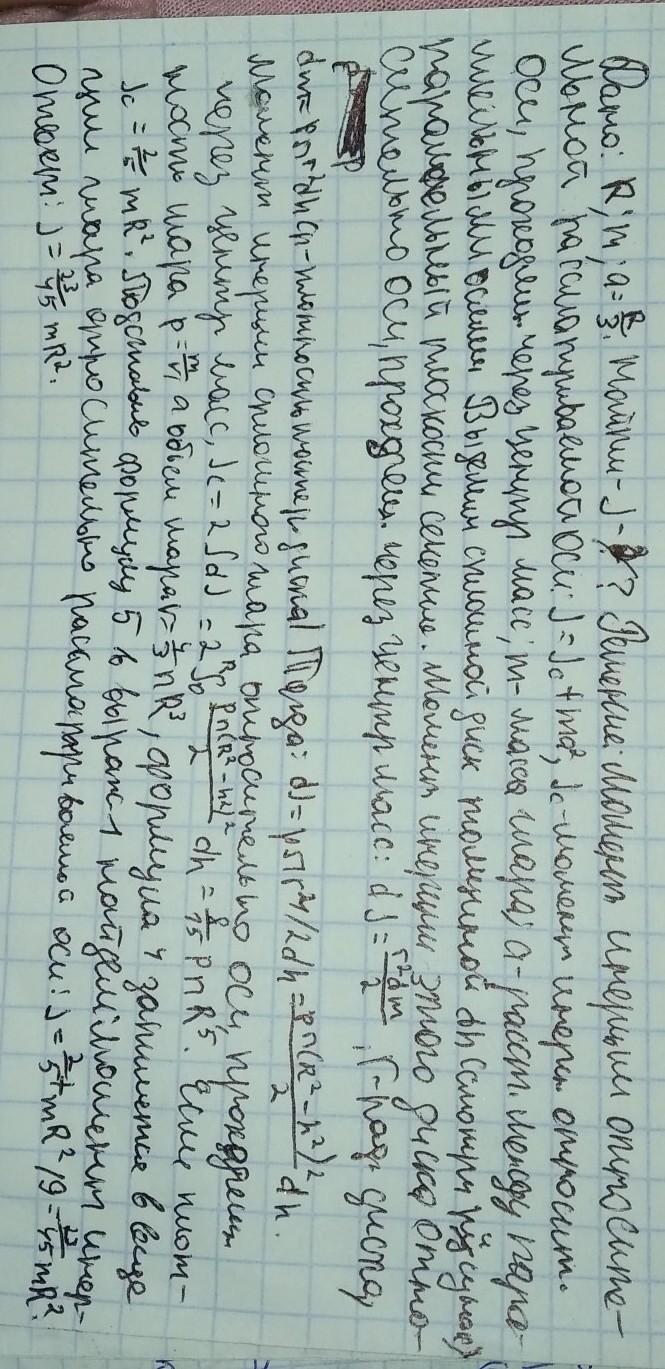 Дано: R; m; a = R/3. Найти - J - ? Решение: Момент инерции относите-
льной рассматриваемой оси: J = Jc + ma², Jc - момент инерц. относит.
оси, проходящ. через центр масс; m - масса шара; a - расст. между пара-
ллельными осями. Выделим сплошной диск толщиной dh (смотри рисунок)
параллельный плоскости сечения. Момент инерции этого диска отно-
сительно оси, проходящ. через центр масс: dJ = r²dm/2, r - рад. диска,
dm = pπr²dh (p - плотность матер. диска) Тогда: dJ = pπr⁴/2dh = pπ(R² - h²)²/2 dh.
Момент инерции сплошного шара относительно оси, проходящей
через центр масс, Jc = 2∫dJ = 2∫₀ᴿ pπ(R² - h²)²/2 dh = 8/15 pπR⁵. Если плот-
ность шара p = m/V, а объем шара V = 4/3 πR³, формула 4 запишется в виде
Jc = 2/5 mR². Подставив формулу 5 в выраж 1 найдем: Момент инер-
ции шара относительно рассматриваемой оси: J = 2/5 + mR²/9 = 23/45 mR².
Ответ: J = 23/45 mR².